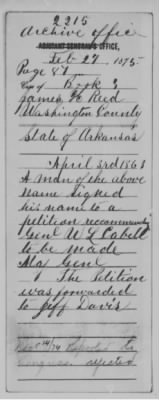 2215
Archive Office
ADJUTANT GENERAL'S OFFICE,
Feb 27 1875
Page 81
Book 3
James H Reid
Washington County
State of Arkansas
April 3rd 1863
A man of the above
name signed
his name to a
petition recommending
Genl W L Cabell
to be made
Maj Genl
The Petition
was forwarded
to Jeff Davis
Reported to
Congress rejected